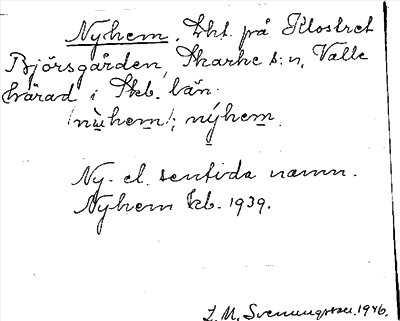 Nyhem, Lht. på Klostret
Björsgården, Skarke s:n, Valle
härad i Skb. län.
/nùhem/; nýhem.
Ny- el. sentida namn.
Nyhem kb. 1939.
L. M. Svenungsson. 1946.